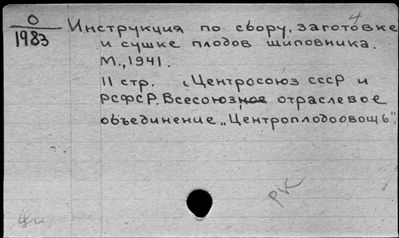 О
1983
Инструкция по сбору, заготовке
и сушке плодов шиповника.
М., 1941.
11 стр. (Центросоюз СССР и
РСФСР. Всесоюзное отраслевое
объединение „Центроплодоовощь".
РК